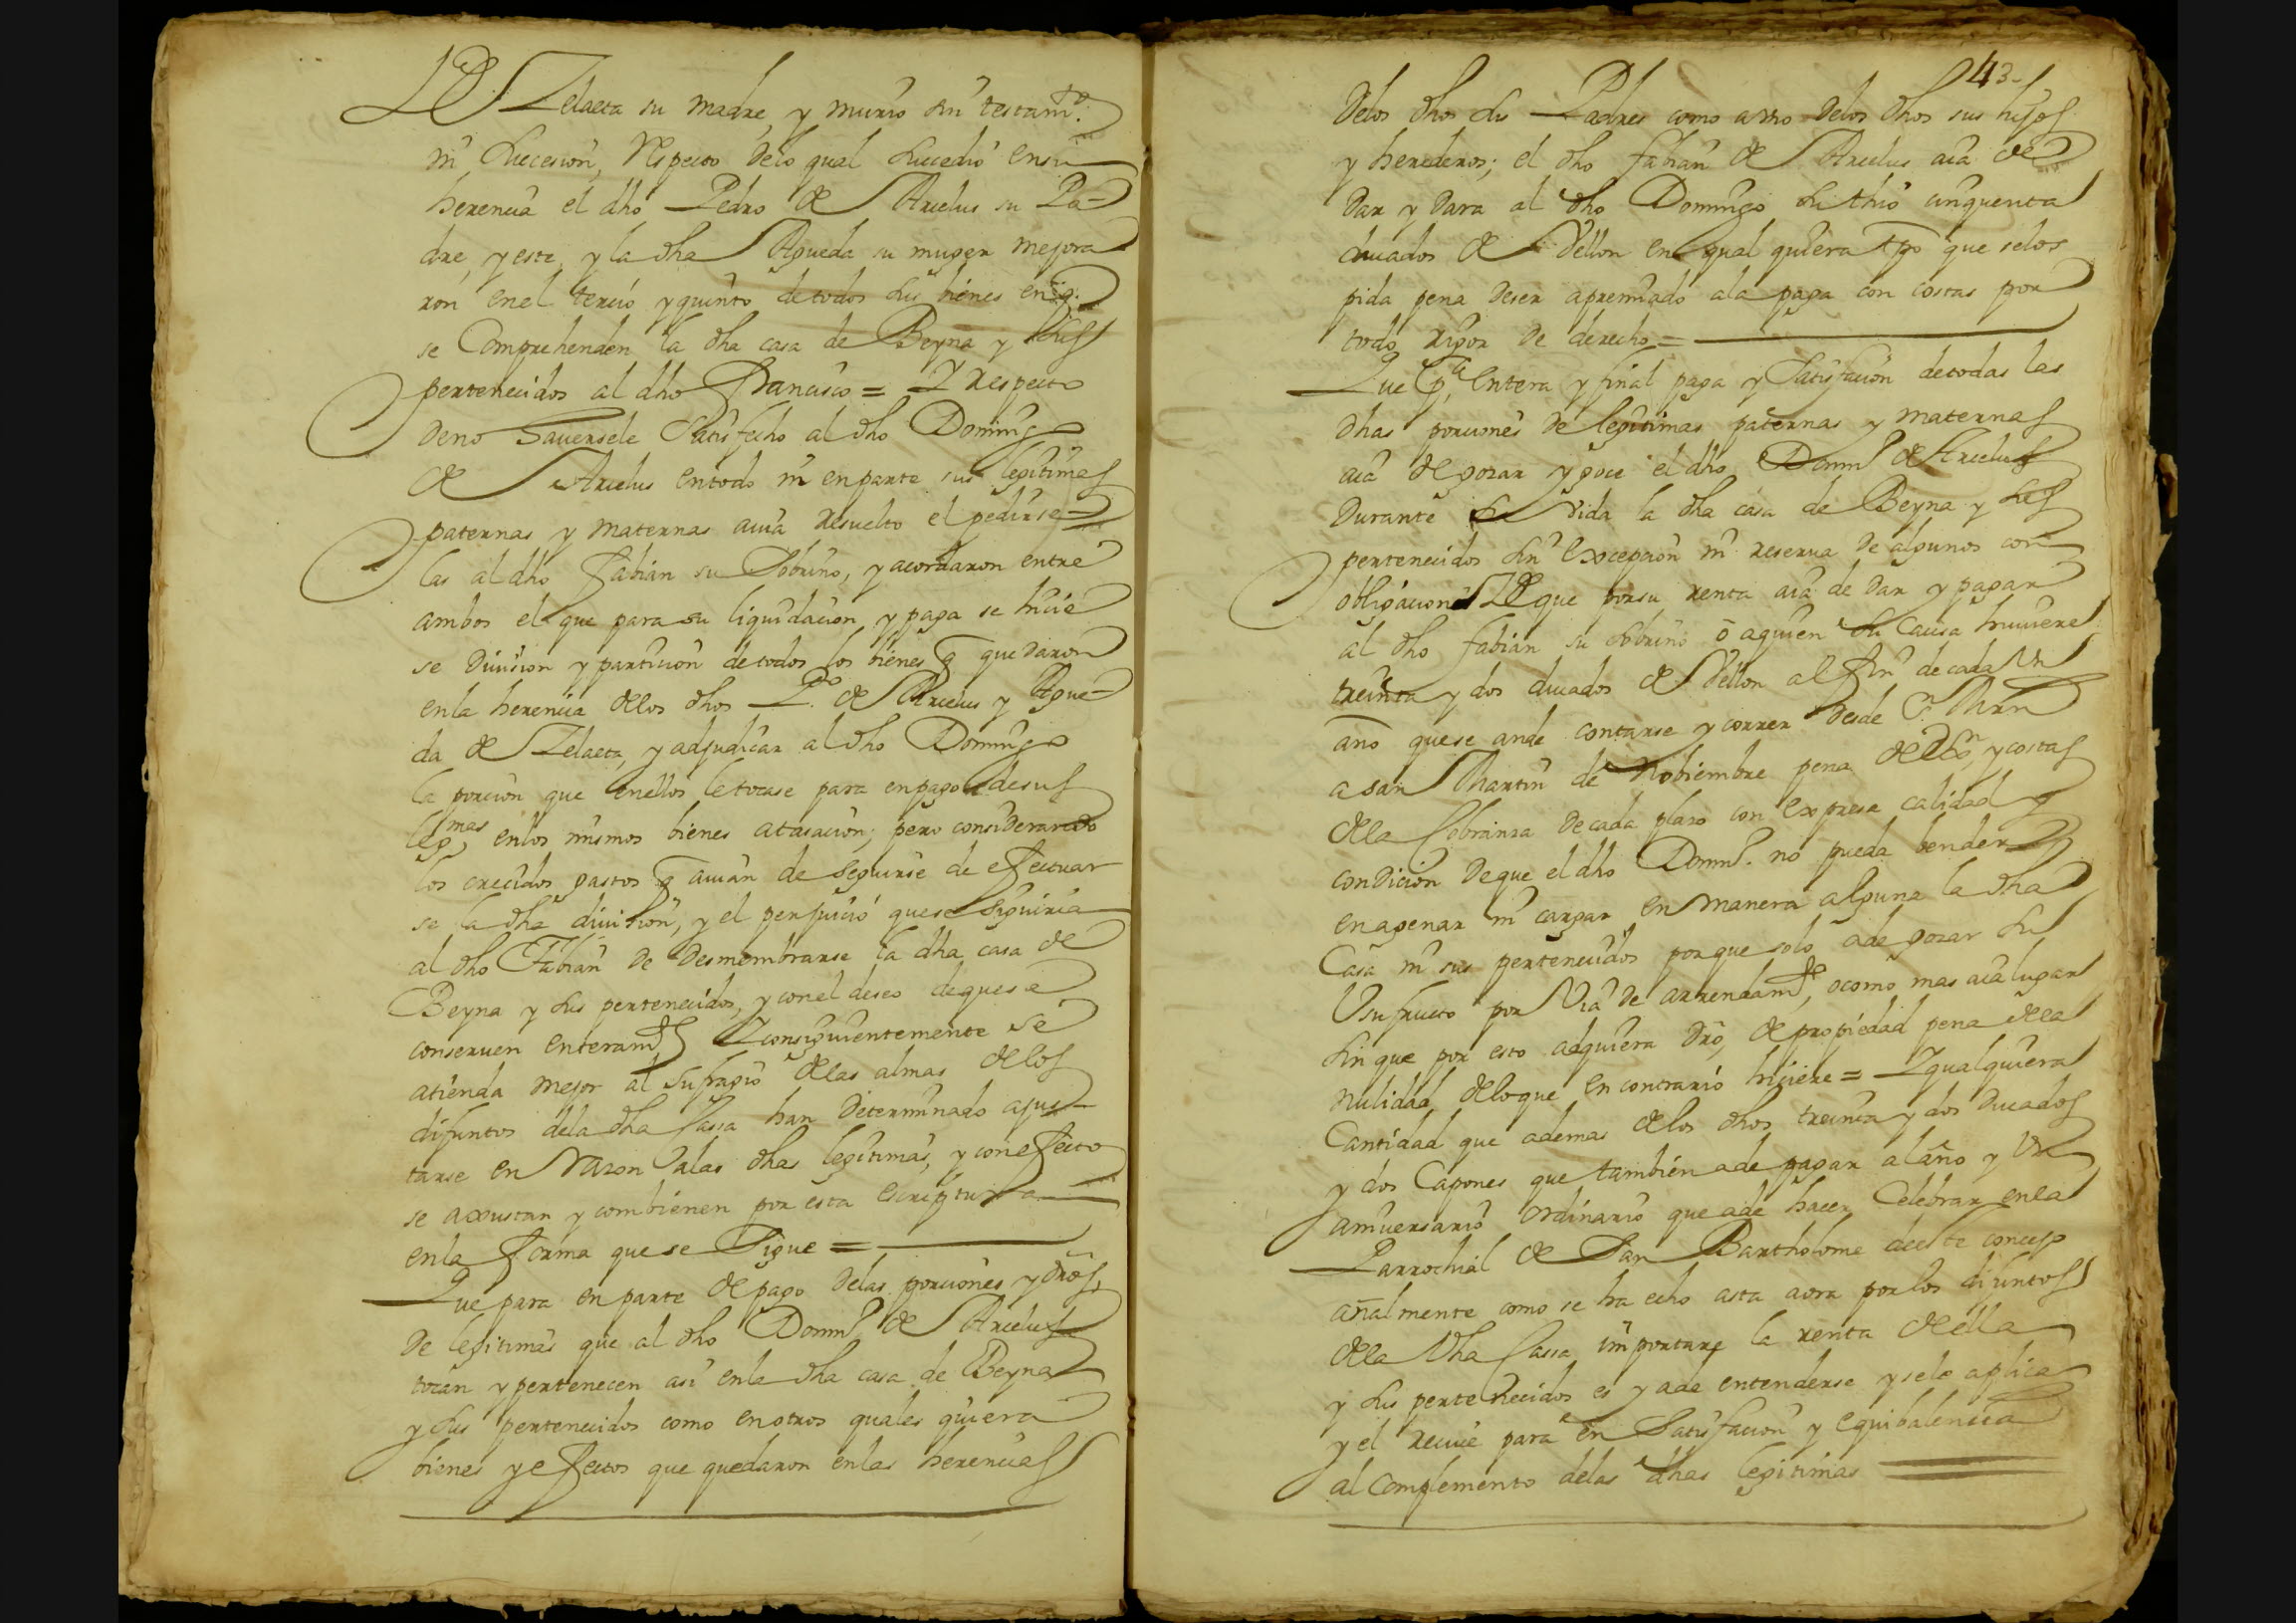 De Zelaeta su madre, y murio sin testamto.
ni subcesion, respecto delo qual subcedio ensu
herencia el dho Pedro de Arcelus su Pa=
dre, y este, y la dha Agueda su muger mejora
ron enel tercio y quinto de todos sus bienes en q.
se Comprehenden la dha casa de Beyna y sus
pertenecidos al dho Francisco = Y respecto
deno hauersele Satisfecho al dho Domingo
de Arcelus entodo ni enparte sus legitimas
paternas y maternas auia resuelto el pedirse=
las al dho fabian su Sobrino, y acordaron entre
ambos el que para su liquidacion y paga se hicie
se diuision y particion de todos los bienes q quedaron
enla herencia delos dhos Po. de Arcelus y Ague=
da de Zelaeta, y adjudicar al dho Domingo
la porcion que enellos letocase para enpago desus
legmas enlos mismos bienes atasacion; pero considerando
los crecidos gastos q auian de seguirse de efectuar
se la dha diuision, y el perjuicio quese siguiria
al dho Fabian de desmembrarse la dha casa de
Beyna y sus pertenecidos, y conel deseo dequese
conseruen enteramte Y consiguientemente se
atienda mejor al sufragio delas almas delos
difuntos dela dha Cassa han determinado ajus-
tarse en razon alas dhas legitimas, y conefecto
se axustan y combienen por esta escriptura
enla forma que se Sigue =
Que para en parte de pago delas porciones y dros
de legitimas que al dho Domingo de Arcelus
tocan y pertenecen asi enla dha casa de Beyna
y sus pertenecidos como enotros quales quiera
bienes y efectos que quedaron enlas herencias
43
delos dhos sus Padres como arro delos dhos sus hijos
y herederos; el dho fabian de Arcelus aia de
dar y dara al dho Domingo su thio cinquenta
ducados de Vellon en qual quiera tpo que selos
pida pena deser apremiado ala paga con costas por
todo rigor de derecho =
Que pa. entera y final paga y Satisfacion detodas las
dhas porciones de legitimas paternas y maternas
aia de gozar y goce el dho Domingo de Arcelus
durante su vida la dha casa de Beyna y sus
pertenecidos sin excepcion ni reserua de algunos con
obligacion de que porsu renta aia de dar y pagar
al dho fabian su sobrino o aquien su causa huuiere
treinta y dos ducados de Vellon al fin de cada Un
año quese ande contarse y correr desde Sn. Mrn
a san Martin de Nobiembre pena de exon y costas
dela Cobranza decada plazo con expresa calidad y
condicion deque el dho Domingo no pueda bender
enagenar ni cargar en manera alguna la dha
Casa ni sus pertenecidos porque solo ade gozar su
Usufructo por via de arrendamto, o como mas aia lugar
sin que por esto adquiera dro, de propiedad pena dela
nulidad delo que en contrario hiciere = Y qualquiera
Cantidad que ademas delos dhos treinta y dos ducados
y dos Capones que tambien ade pagar al año y Un
aniuersario ordinario que ade hacer Celebrar enla
Parrochial de San Bartholome deeste concejo
añalmente como se ha echo asta aora por los difuntos
dela dha Cassa importare la renta de ella
y sus pertenecidos es y ade entenderse y sele aplica
y el reciue para en Satisfacion y equibalencia
al Complemento delas dhas legitimas